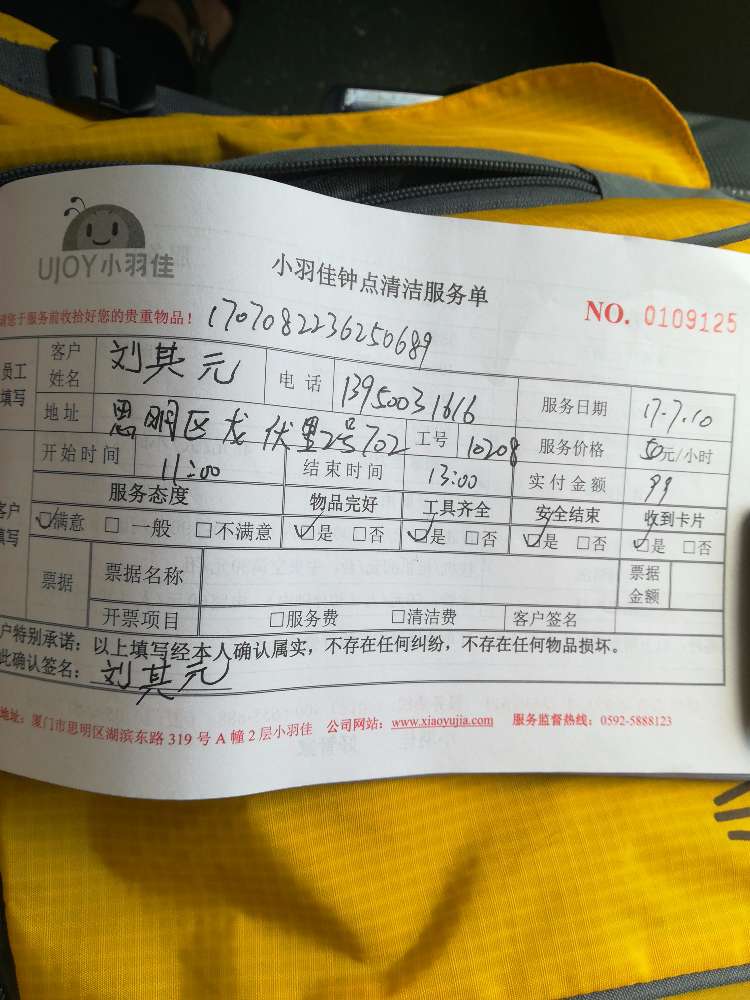 UJOY小羽佳
小羽佳钟点清洁服务单
NO. 0109125
您于服务前收拾好您的贵重物品！
1707082236250689
员工填写 客户姓名 刘其元 电话 13950031616 服务日期 17-7.10
地址 思明区龙伏里2号702 工号 10208 服务价格 50元/小时
客户填写 开始时间 11:00 结束时间 13:00 实付金额 99
服务态度 物品完好 工具齐全 安全结束 收到卡片
☑满意 □一般 □不满意 ☑是 □否 ☑是 □否 ☑是 □否 ☑是 □否
票据 票据名称 票据金额
开票项目 □服务费 □清洁费 客户签名
户特别承诺：以上填写经本人确认属实，不存在任何纠纷，不存在任何物品损坏。
此确认签名：刘其元
地址：厦门市思明区湖滨东路 319 号 A 幢 2 层小羽佳 公司网站：www.xiaoyujia.com 服务监督热线：0592-5888123